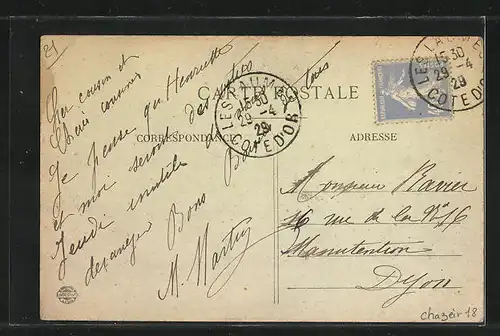 CARTE POSTALE
CORRESPONDANCE
ADRESSE
LES LAUMES
15 30
29 - 4
29
COTE D'OR
LES LAUMES
15 30
29 - 4
29
COTE D'OR
Cher cousin et
Chère cousine
Je pense qu'Henriette
et moi serons
Jeudi inutile
de
déranger Bons Baisers
M. Martin
Monsieur Ravier
16 rue de la
Manutention
Dijon
chazeir 18